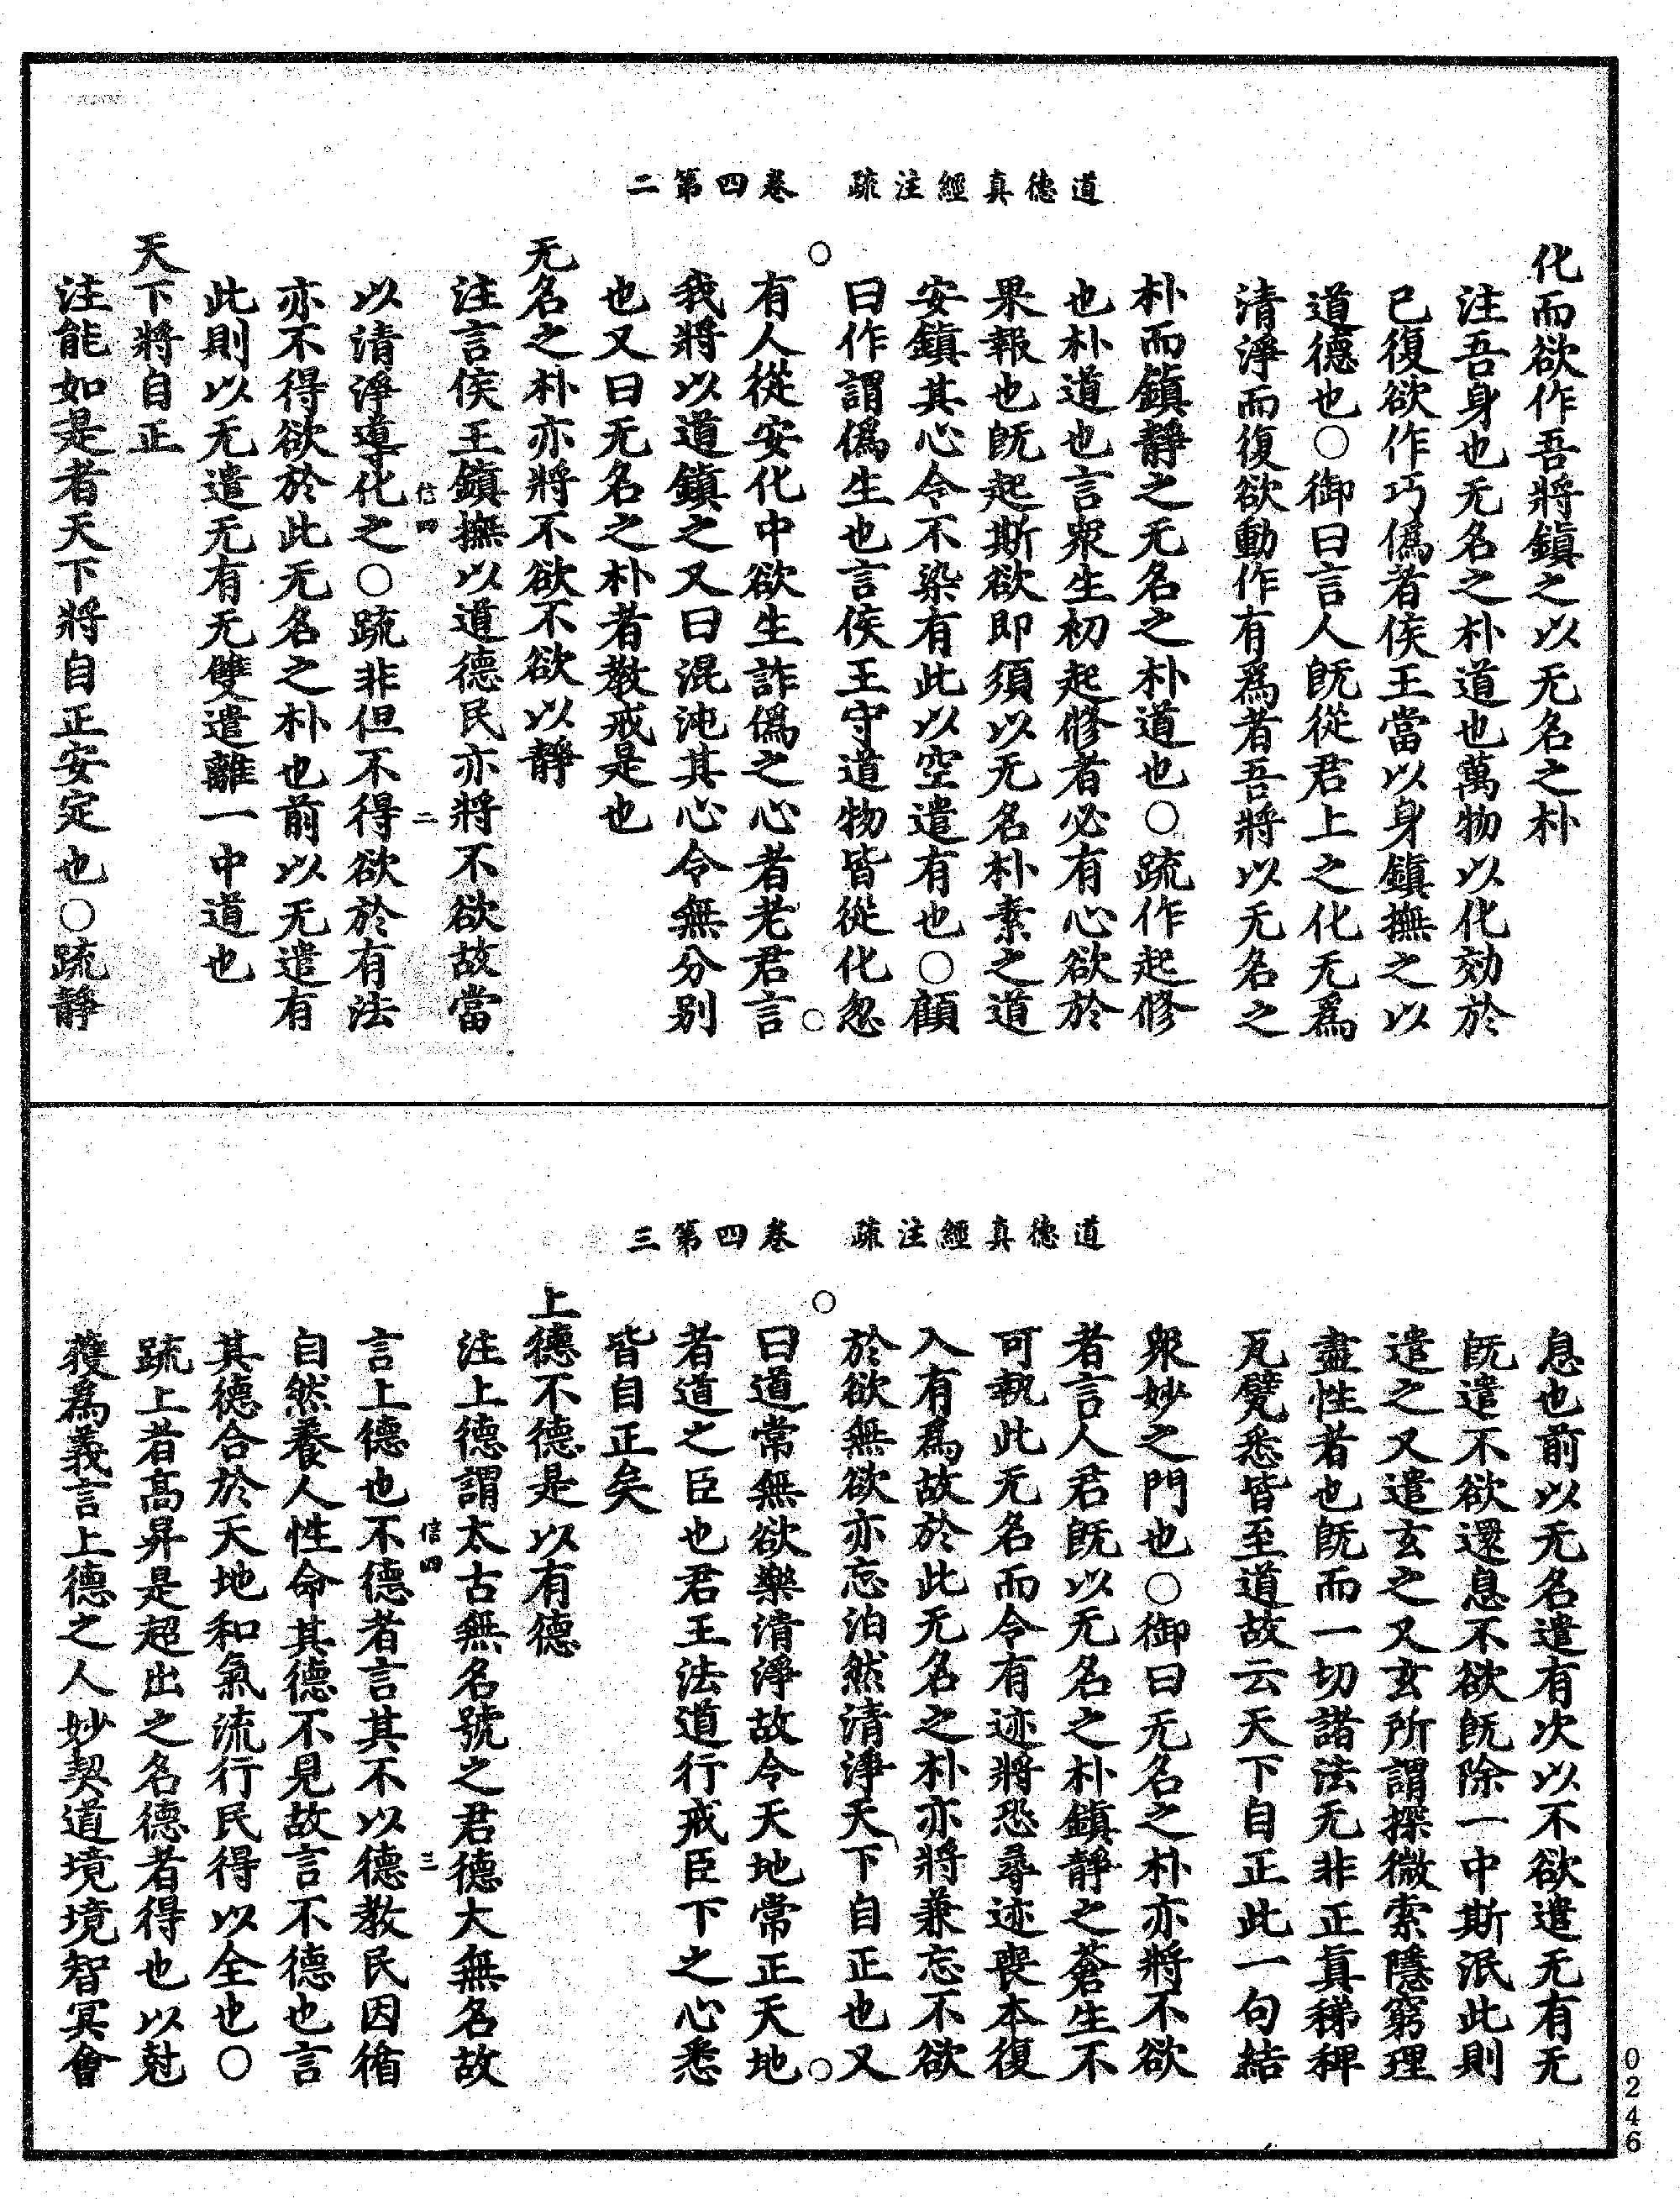 道德真經注疏　卷四第二
化而欲作吾將鎮之以无名之朴
注吾身也无名之朴道也萬物以化効於
己復欲作巧偽者侯王當以身鎮撫之以
道德也○御曰言人既從君上之化无為
清淨而復欲動作有為者吾將以无名之
朴而鎮靜之无名之朴道也○䟽作起修
也朴道也言衆生初起修者必有心欲於
果報也既起斯欲即須以无名朴素之道
安鎮其心令不染有此以空遣有也○顧
曰作謂偽生也言侯王守道物皆從化忽
有人從安化中欲生詐偽之心者老君言
我將以道鎮之又曰混沌其心令無分別
也又曰无名之朴者教戒是也
无名之朴亦將不欲不欲以靜
注言侯王鎮撫以道德民亦將不欲故當
信四　二
以清淨導化之○䟽非但不得欲於有法
亦不得欲於此无名之朴也前以无遣有
此則以无遣无有无雙遣離一中道也
天下將自正
注能如是者天下將自正安定也○䟽靜
道德真經注疏　卷四第三
息也前以无名遣有次以不欲遣无有无
既遣不欲還息不欲既除一中斯泯此則
遣之又遣玄之又玄所謂探微索隱窮理
盡性者也既而一切諸法无非正真稊稗
瓦甓悉皆至道故云天下自正此一句結
衆妙之門也○御曰无名之朴亦將不欲
者言人君既以无名之朴鎮靜之蒼生不
可執此无名而令有迹將恐尋迹喪本復
入有為故於此无名之朴亦將兼忘不欲
於欲無欲亦忘泊然清淨天下自正也又
曰道常無欲樂清淨故令天地常正天地
者道之臣也君王法道行戒臣下之心悉
皆自正矣
上德不德是以有德
注上德謂太古無名號之君德大無名故
信四　三
言上德也不德者言其不以德教民因循
自然養人性命其德不見故言不德也言
其德合於天地和氣流行民得以全也○
䟽上者高昇是超出之名德者得也以尅
獲為義言上德之人妙契道境境智冥會
0246